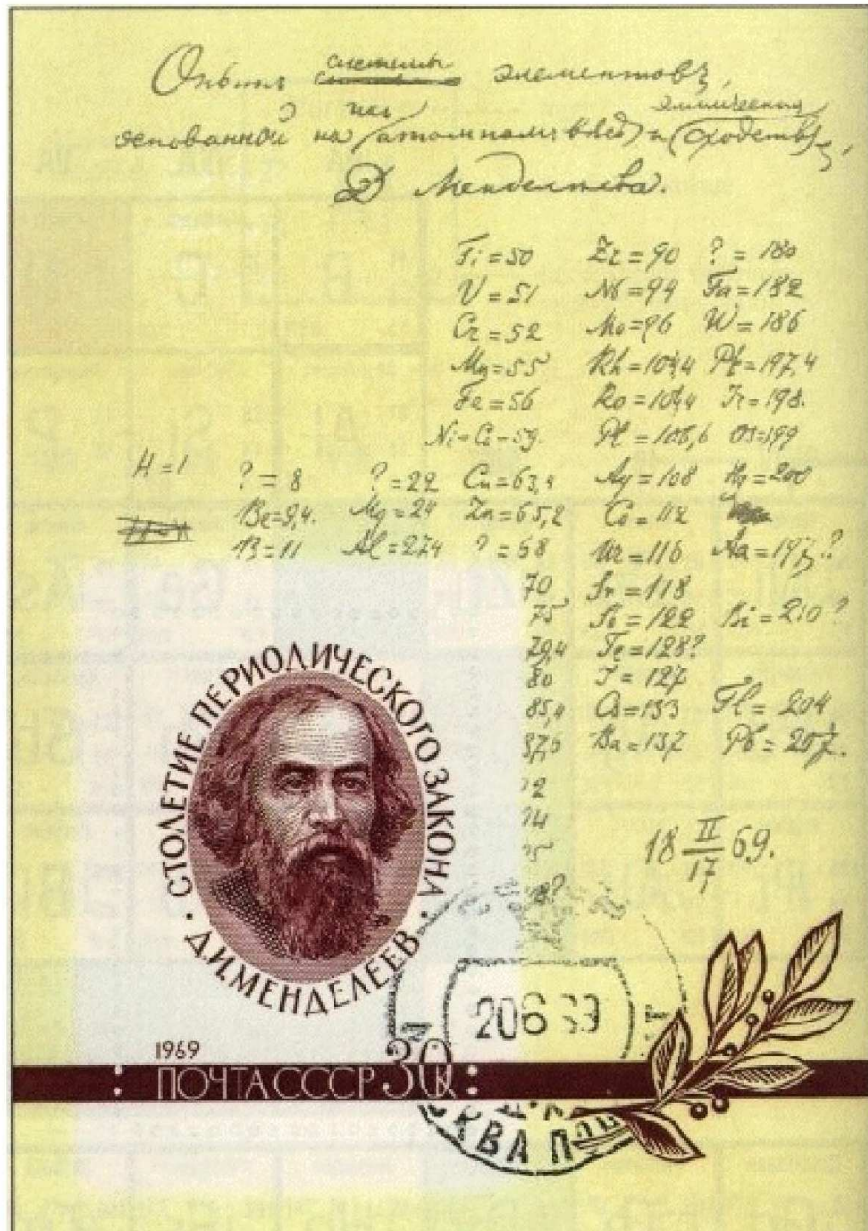 Опытъ системы элементовъ,
основанной на ихъ атомномъ вѣсѣ и химическомъ сходствѣ.
Д Менделѣева.
Ti=50 Zr=90 ?=180
V=51 Nb=94 Ta=182
Cr=52 Mo=96 W=186
Mn=55 Rh=104,4 Pt=197,4
Fe=56 Ru=104,4 Ir=198.
Ni=Co=59. Pl=106,6 Os=199
H=1 ?=8 ?=22 Cu=63,4 Ag=108 Hg=200
Be=9,4. Mg=24 Zn=65,2 Cd=112
B=11 Al=27,4 ?=68 Ur=116 Au=197?
70 Sn=118
75 Sb=122 Bi=210?
79,4 Te=128?
80 J=127
85,4 Cs=133 Tl=204
87,6 Ba=137 Pb=207.
18 II/17 69.
СТОЛЕТИЕ ПЕРИОДИЧЕСКОГО ЗАКОНА
Д.И.МЕНДЕЛЕЕВ
20 6 69
1969
ПОЧТА СССР 30к